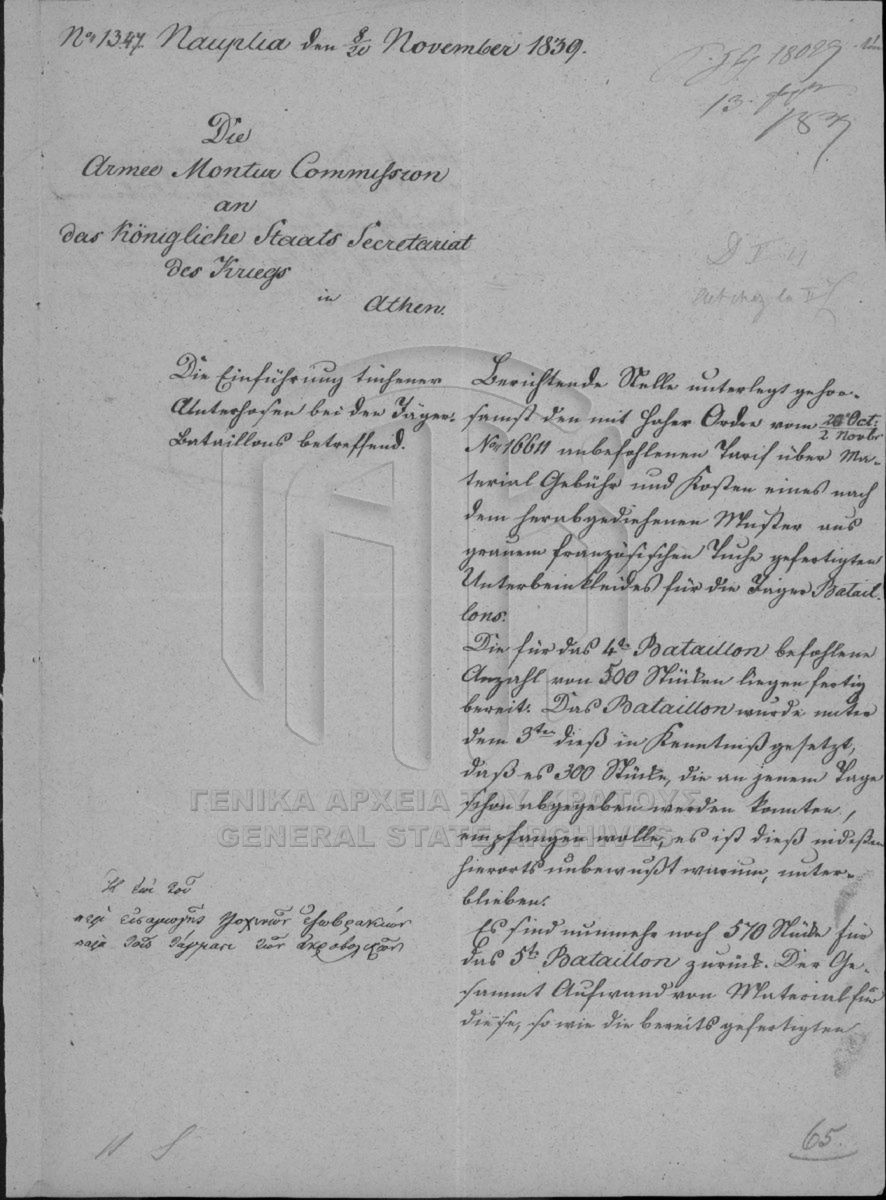 Nº 1347. Nauplia den 8/20 November 1839.
18029
13
Die
Armee Montur Commission
an
das Königliche Staats Secretariat
des Kriegs
in Athen.
Die Einführung tuchener
Unterhosen bei den Jäger-
Bataillons betreffend.
Berichtende Stelle unterlegt gehor-
samst den mit hoher Ordre vom 2 Novbr
Nº 16611 anbefohlenen Tarif über Ma-
terial Gebühr und Kosten eines nach
dem herabgediehenen Muster aus
grauem französischen Tuche gefertigten
Unterbeinkleides für die Jäger Batail-
lons.
Die für das 4te Bataillon befohlene
Anzahl von 500 Stücken liegen fertig
bereit. Das Bataillon wurde unter
dem 3ten dieß in Kenntniß gesetzt,
daß es 300 Stücke, die an jenem Tage
schon abgegeben werden konnten,
empfangen wolle, es ist dieß indeßen
hierorts unbewußt warum, unter-
blieben.
Es sind nunmehr noch 570 Stücke für
das 5te Bataillon zurück. Der Ge-
sammt Aufwand von Material für
diese, so wie die bereits gefertigten
περὶ εἰσαγωγῆς
παρὰ τοῖς τάγμασι τῶν ἀκροβολιστῶν
65.
ΓΕΝΙΚΑ ΑΡΧΕΙΑ ΤΟΥ ΚΡΑΤΟΥΣ
GENERAL STATE ARCHIVES